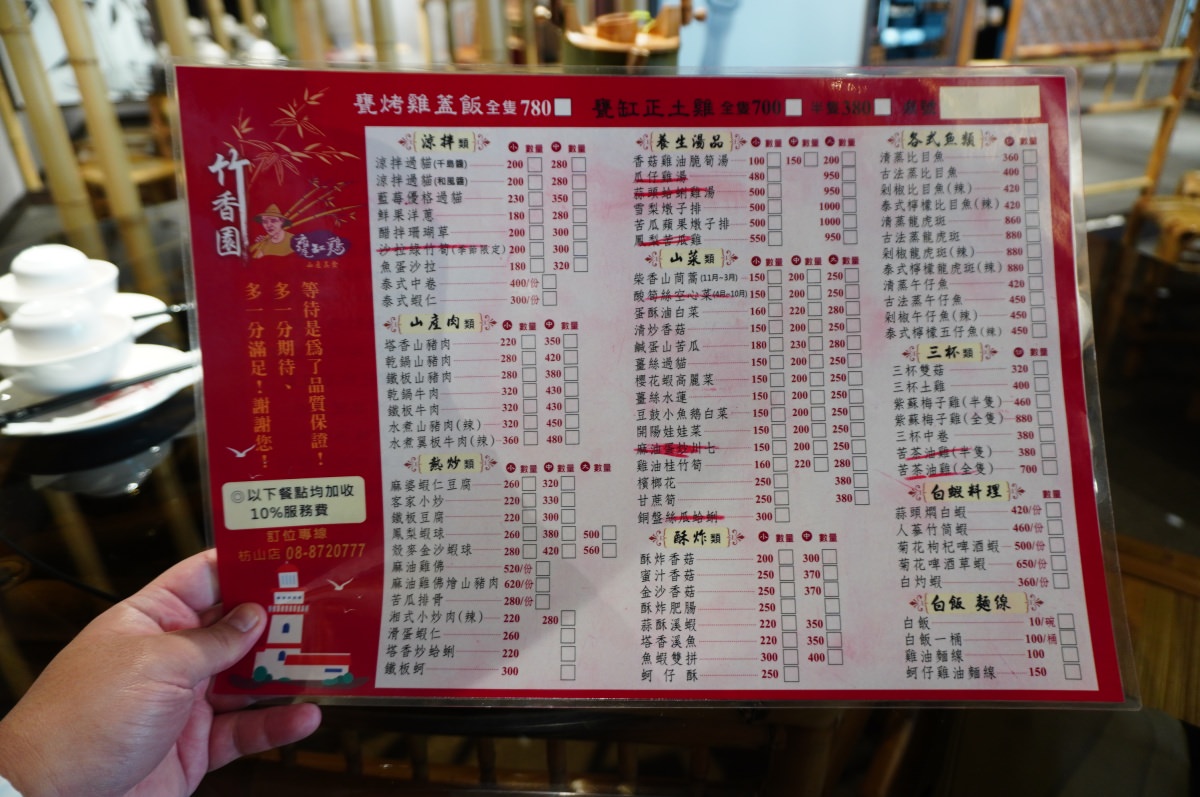 甕烤雞蓋飯全隻780
甕缸正土雞全隻700 半隻380
竹香園
甕缸鷄
等待是為了品質保證!
多一分期待、
多一分滿足!謝謝您!!
◎以下餐點均加收
10%服務費
訂位專線
枋山店 08-8720777
涼拌類 小 數量 中 數量
涼拌過貓(千島醬) 200 280
涼拌過貓(和風醬) 200 280
藍莓優格過貓 230 350
鮮果洋蔥 180 280
醋拌珊瑚草 200 300
沙拉綠竹筍(季節限定) 200 300
魚蛋沙拉 180 320
泰式中卷 400/份
泰式蝦仁 300/份
山產肉類 小 數量 中 數量
塔香山豬肉 220 350
乾鍋山豬肉 280 420
鐵板山豬肉 280 380
乾鍋牛肉 320 430
鐵板牛肉 320 430
水煮山豬肉(辣) 320 450
水煮翼板牛肉(辣) 360 480
熱炒類 小 數量 中 數量 大 數量
麻婆蝦仁豆腐 260 320
客家小炒 220 330
鐵板豆腐 220 300
鳳梨蝦球 260 380 500
殼麥金沙蝦球 280 420 560
麻油雞佛 520/份
麻油雞佛燴山豬肉 620/份
苦瓜排骨 280/份
湘式小炒肉(辣) 220 280
滑蛋蝦仁 260
塔香炒蛤蜊 220
鐵板蚵 300
養生湯品 小 數量 中 數量 大 數量
香菇雞油脆筍湯 100 150 200
瓜仔雞湯 480 950
蒜頭蛤蜊雞湯 500 950
雪梨燉子排 500 1000
苦瓜蘋果燉子排 500 1000
鳳梨苦瓜雞 550 950
山菜類 小 數量 中 數量 大 數量
柴香山茼蒿(11月~3月) 150 200 250
酸筍絲空心菜(4月~10月) 150 200 250
蛋酥滷白菜 160 220 280
清炒香菇 150 200 250
鹹蛋山苦瓜 180 230 280
薑絲過貓 150 200 250
櫻花蝦高麗菜 150 200 250
薑絲水蓮 150 200 250
豆鼓小魚鵝白菜 150 200 250
開陽娃娃菜 150 200 250
麻油蛋炒川七 150 200 250
雞油桂竹筍 160 220 280
檳榔花 250 380
甘蔗筍 250 380
銅盤絲瓜蛤蜊 300
酥炸類 小 數量 中 數量
酥炸香菇 200 300
蜜汁香菇 250 370
金沙香菇 250 370
酥炸肥腸 250
蒜酥溪蝦 220 350
塔香溪魚 220 350
魚蝦雙拼 300 400
蚵仔酥 250
各式魚類 數量
清蒸比目魚 360
古法蒸比目魚 400
剁椒比目魚(辣) 420
泰式檸檬比目魚(辣) 420
清蒸龍虎斑 860
古法蒸龍虎斑 880
剁椒龍虎斑(辣) 880
泰式檸檬龍虎斑(辣) 880
清蒸午仔魚 420
古法蒸午仔魚 450
剁椒午仔魚(辣) 450
泰式檸檬五仔魚(辣) 450
三杯類 數量
三杯雙菇 320
三杯土雞 400
紫蘇梅子雞(半隻) 460
紫蘇梅子雞(全隻) 880
三杯中卷 380
苦茶油雞(半隻) 380
苦茶油雞(全隻) 700
白蝦料理 數量
蒜頭燜白蝦 420/份
人蔘竹筒蝦 460/份
菊花枸杞啤酒蝦 500/份
菊花啤酒草蝦 650/份
白灼蝦 360/份
白飯 麵線 數量
白飯 10/碗
白飯一桶 100/桶
雞油麵線 100
蚵仔雞油麵線 150